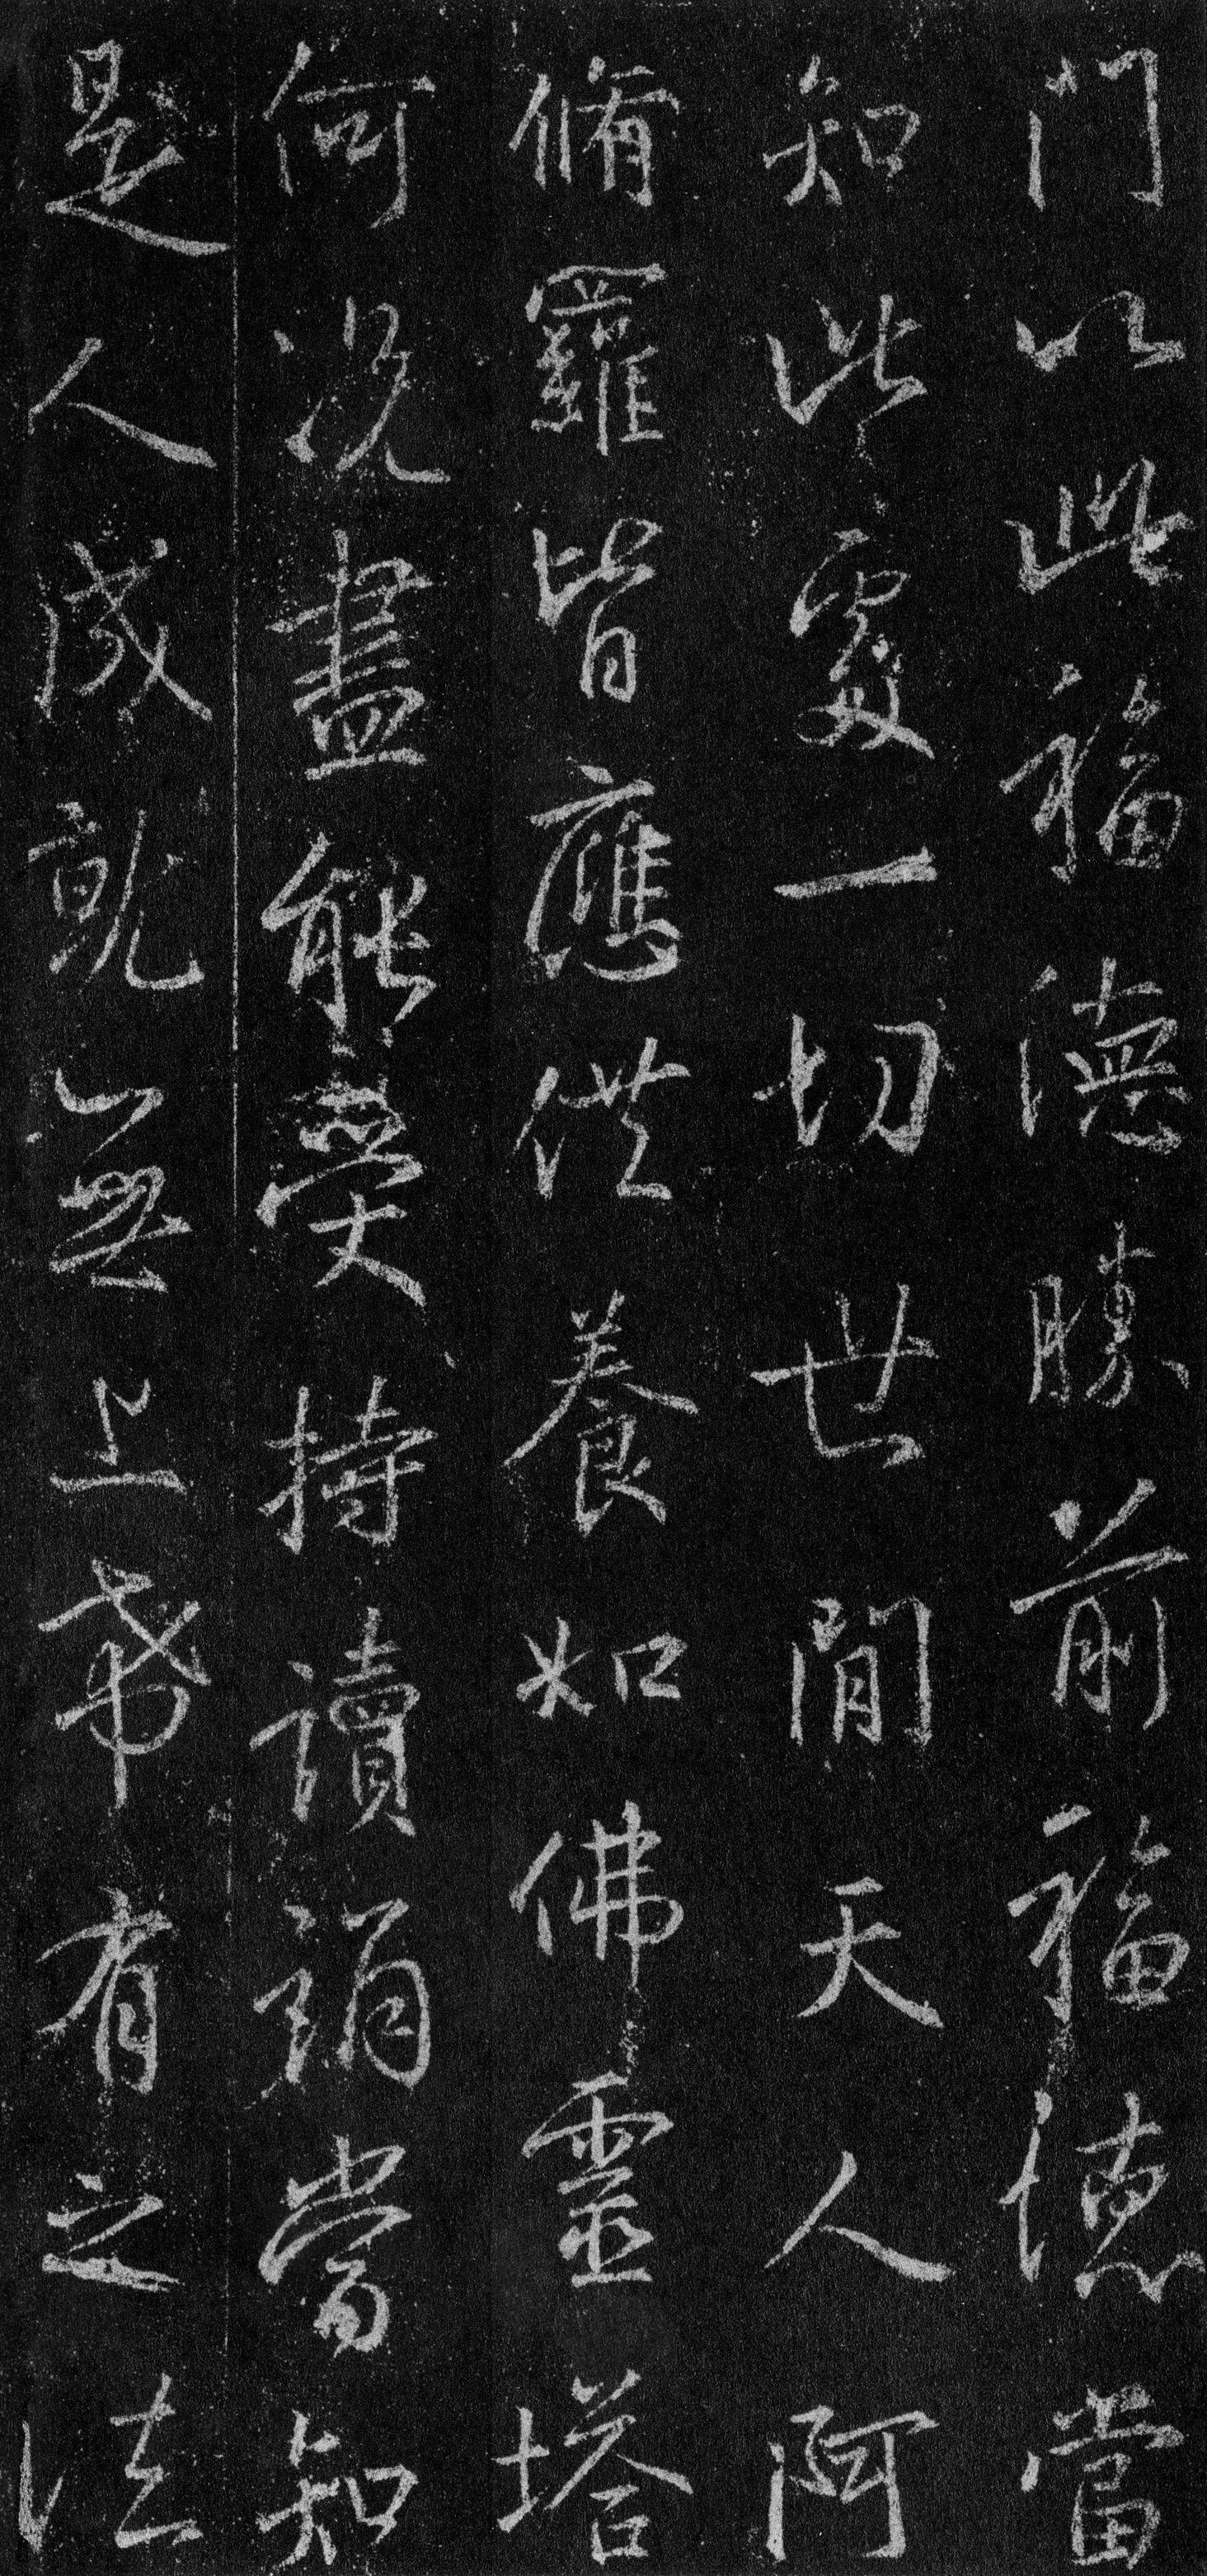 門以此福德勝前福德當
知此處一切世間天人阿
脩羅皆應供養如佛靈塔
何況盡能受持讀誦當知
是人成就無上希有之法